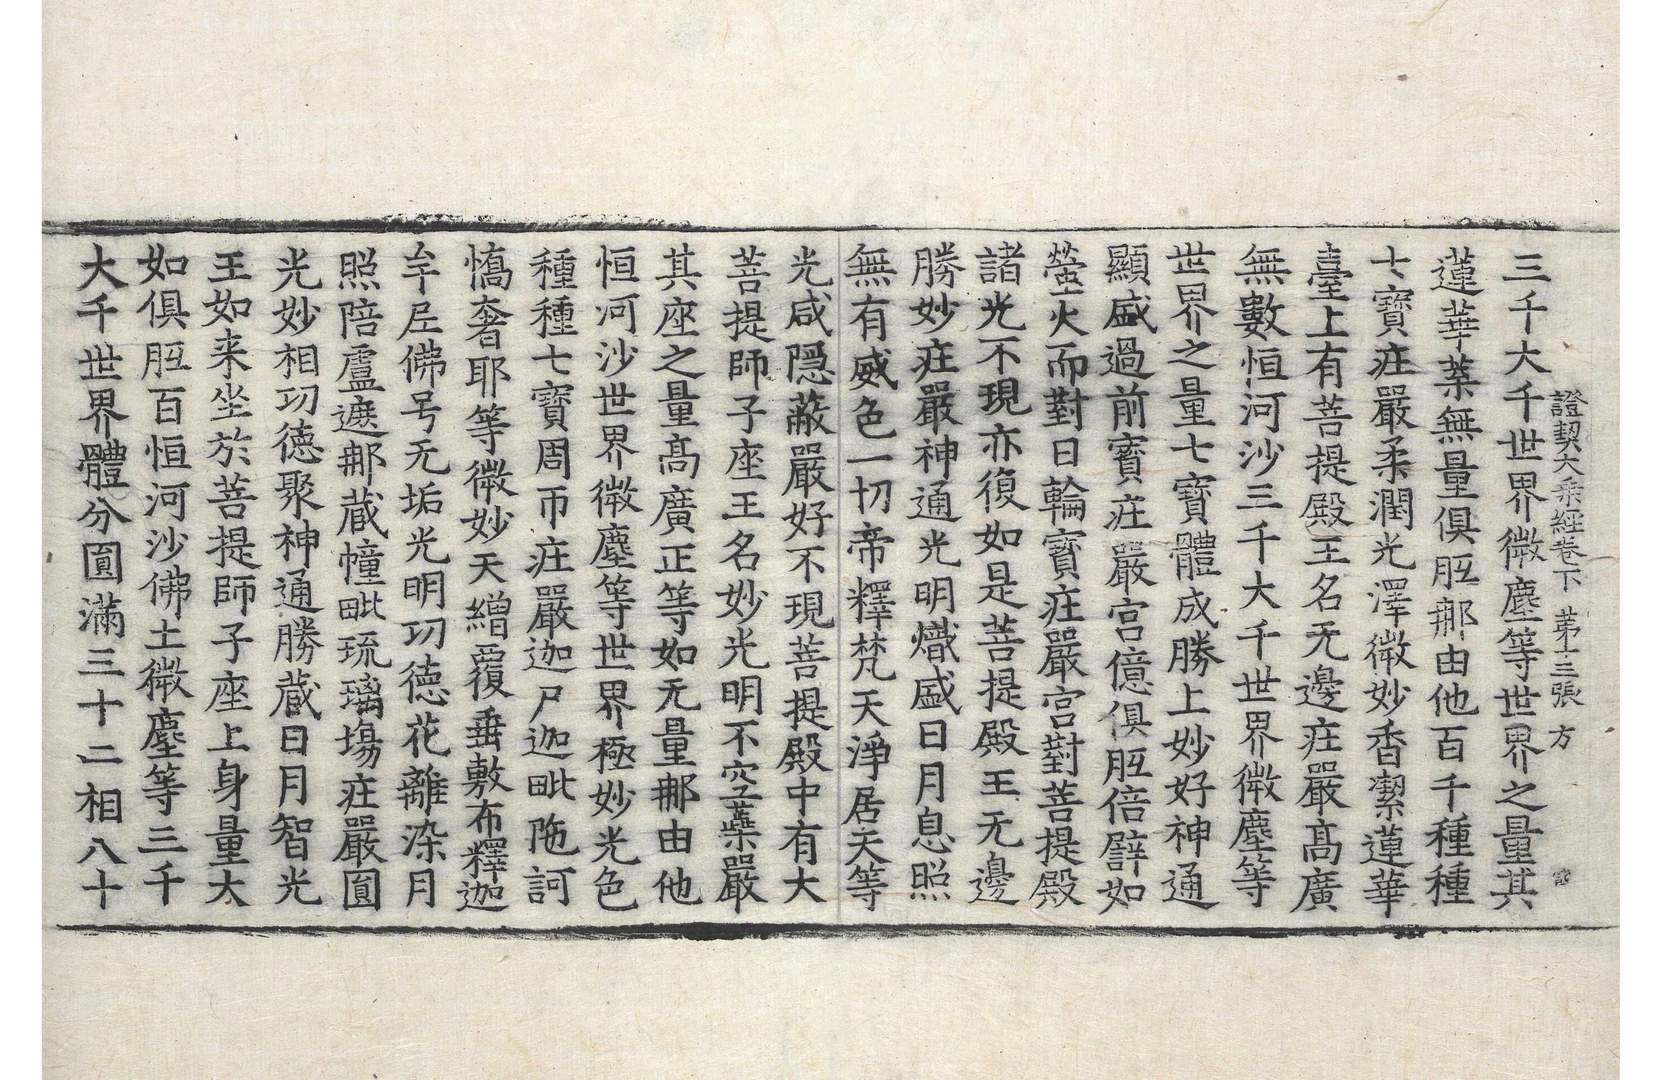 證契大乘經卷下 第十三張 方
三千大千世界微塵等世界之量其
蓮華葉無量俱胝那由他百千種種
七寶庄嚴柔潤光澤微妙香潔蓮華
臺上有菩提殿王名无邊庄嚴髙廣
無數恒河沙三千大千世界微塵等
世界之量七寶體成勝上妙好神通
顯盛過前寶庄嚴宮億俱胝倍譬如
螢火而對日輪寶庄嚴宮對菩提殿
諸光不現亦復如是菩提殿王无邊
勝妙庄嚴神通光明熾盛日月息照
無有威色一切帝釋梵天淨居天等
光咸隱蔽嚴好不現菩提殿中有大
菩提師子座王名妙光明不空藥嚴
其座之量髙廣正等如无量那由他
恒河沙世界微塵等世界極妙光色
種種七寶周帀庄嚴迦尸迦毗陁訶
憍奢耶等微妙天繒覆垂敷布釋迦
牟𡰱佛号无垢光明功德花離染月
照陪盧遮那蔵幢毗琉璃場庄嚴圎
光妙相功德聚神通勝蔵日月智光
王如来坐於菩提師子座上身量大
如俱胝百恒河沙佛土微塵等三千
大千世界體分圎滿三十二相八十